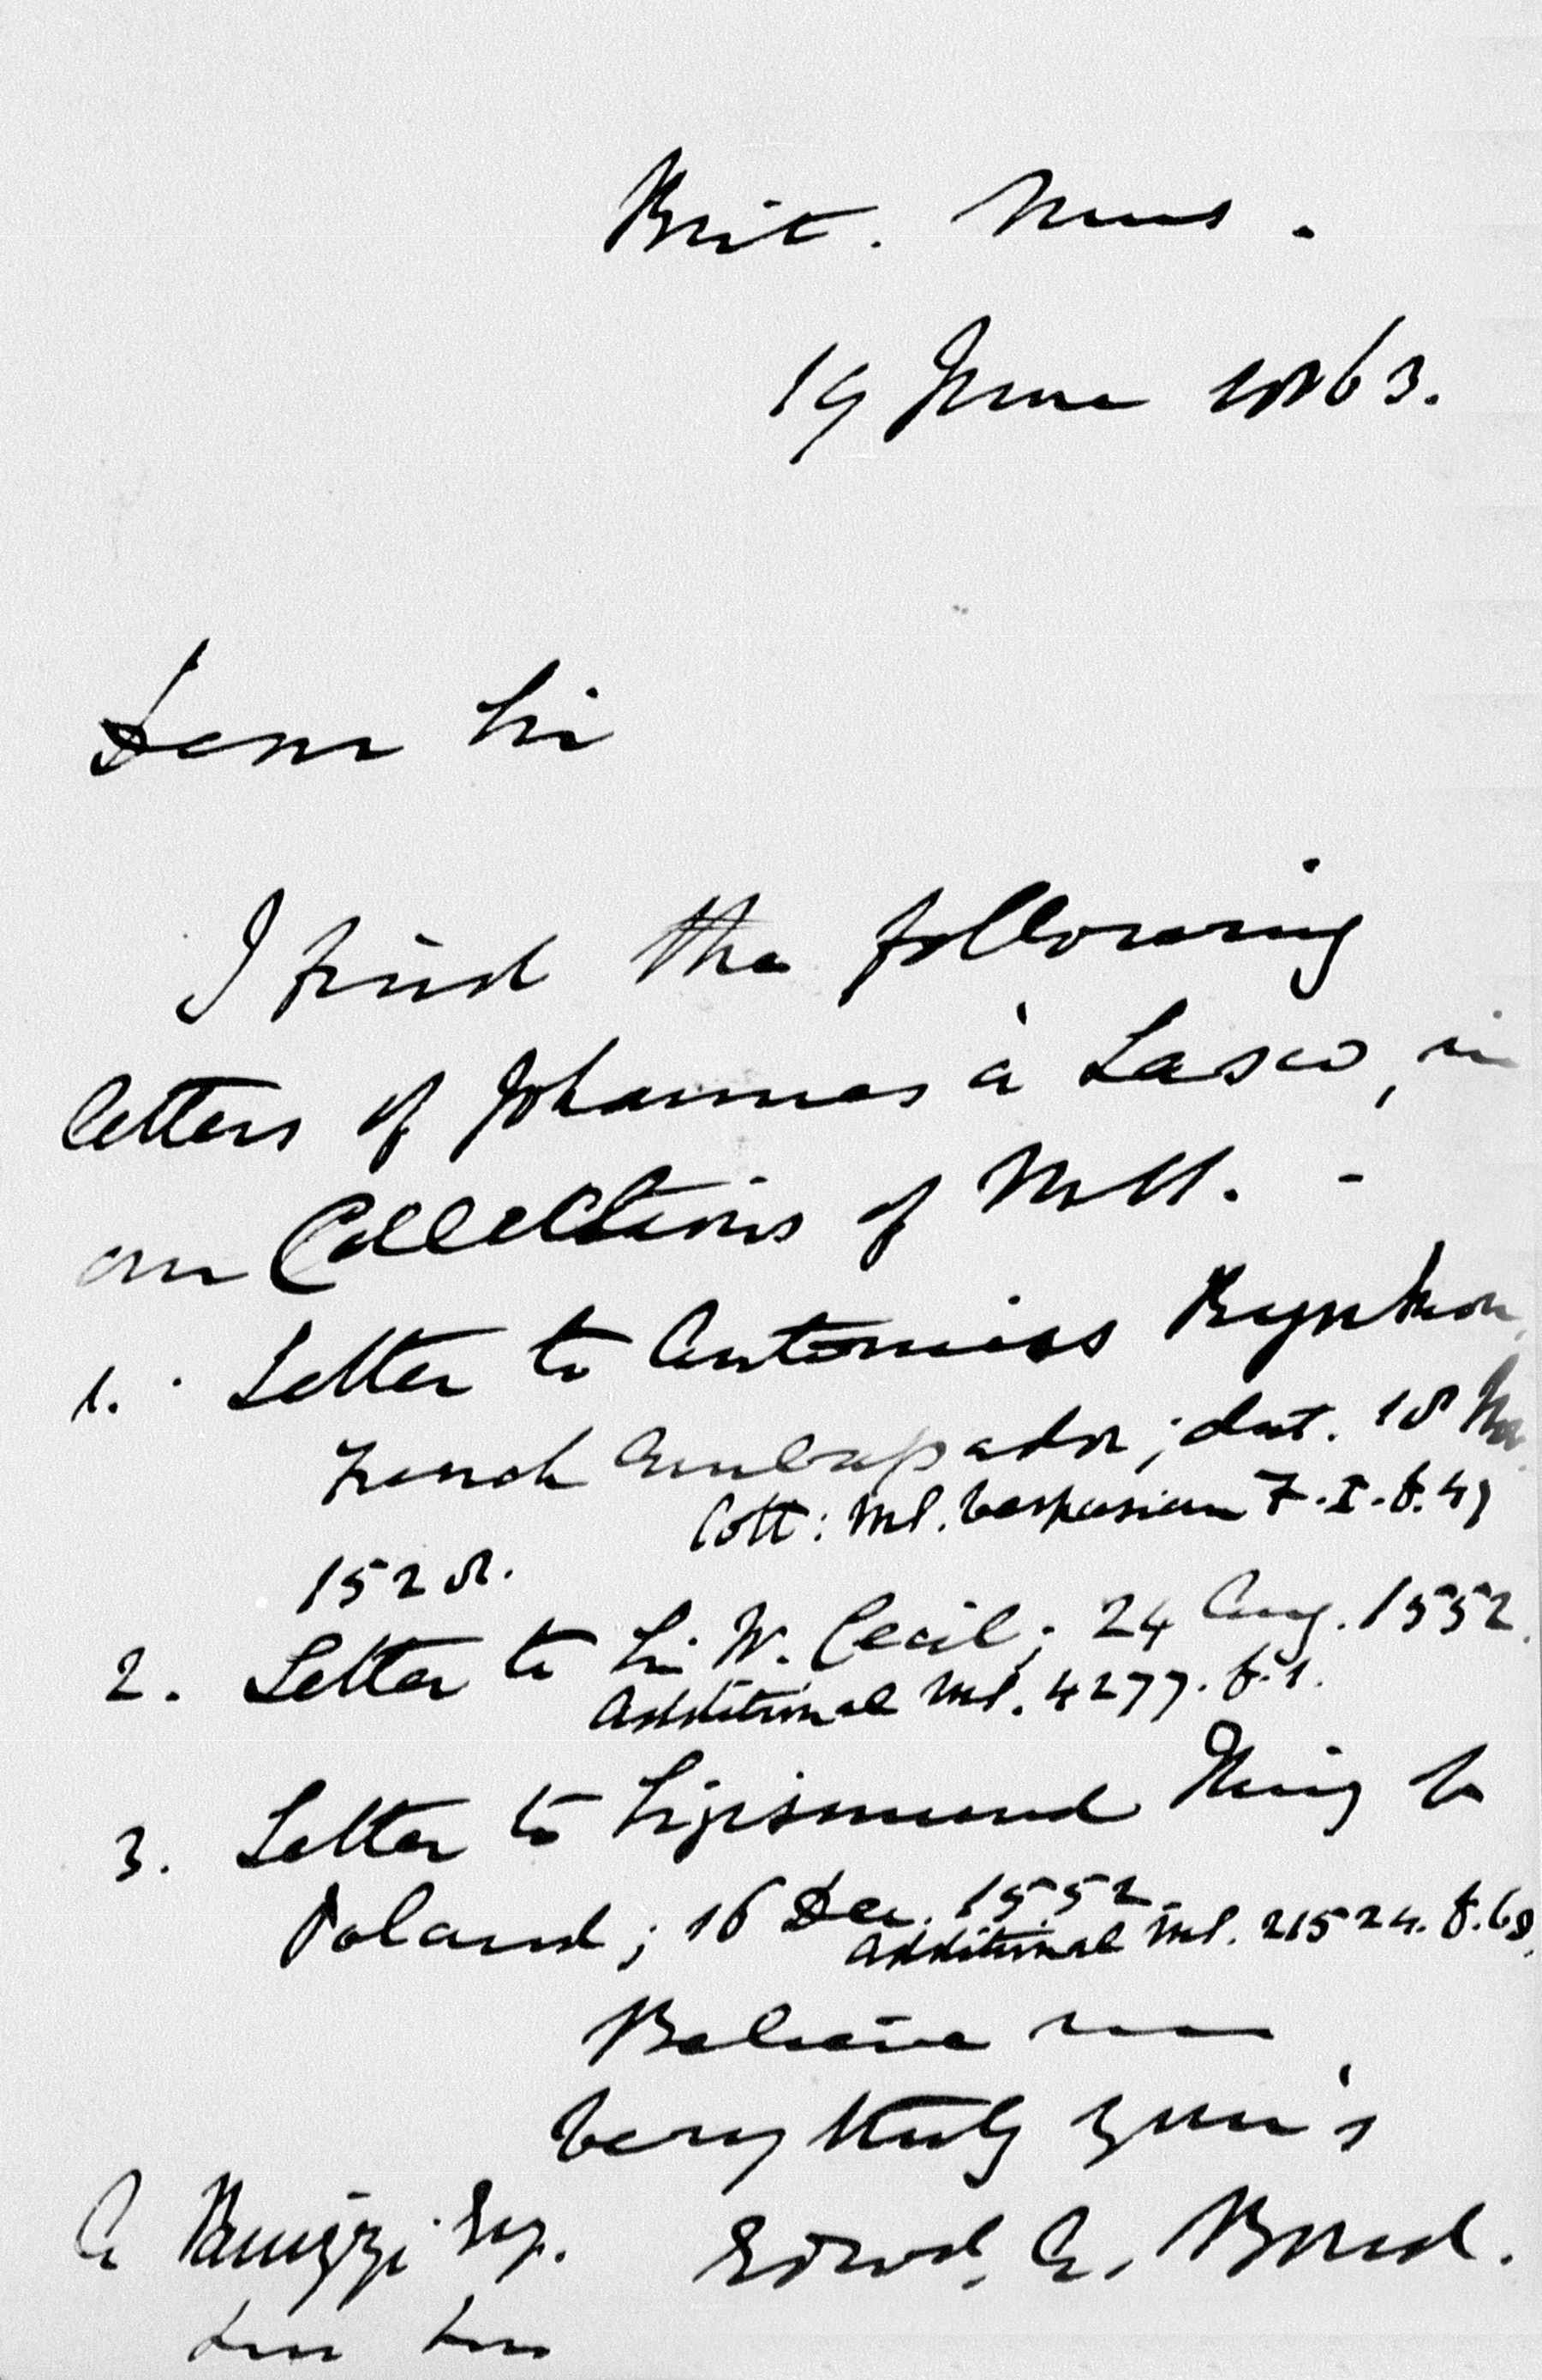 Brit. Mus.
19 June 1863.
Dear Sir
I find the following
letters of Johannes à Lasco, in
our Collections of MSS. -
1. Letter to Antonius
French Ambassador; dat. 18
Cott: MS. Vespasian F. I. f. 49
1528.
2. Letter to Sir W. Cecil; 24 Aug. 1552.
Additional MS. 4277. f. 1.
3. Letter to Sigismund King of
Poland; 16 Dec. 1552.
Additional MS. 21524. f. 68.
Believe me
Very truly your's
A Panizzi Esq. Edwd. A. Bond.